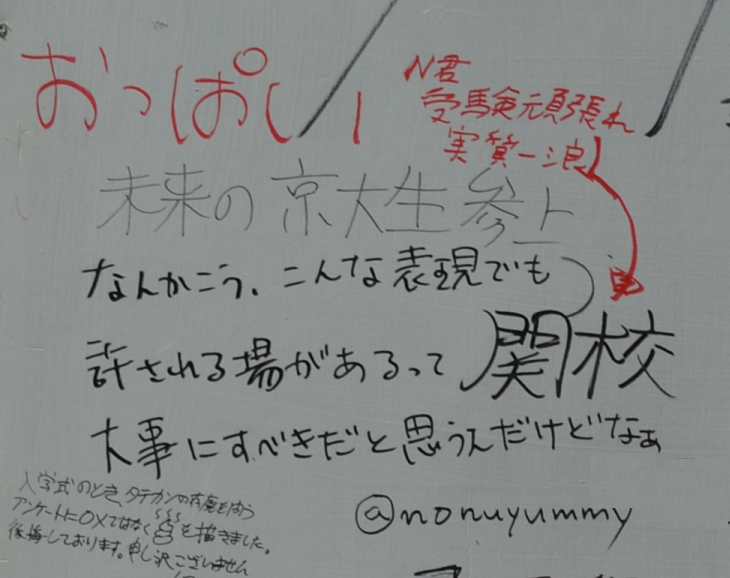 おっぱい
N君
受験頑張れ
実質一浪
未来の京大生参上
なんかこう、こんな表現でも
許される場があるって
関校
大事にすべきだと思うんだけどなぁ
入学式のとき、タテカンの有無を問う
アンケートに○×ではなく を描きました。
後悔しております。申し訳ございません
@nonuyummy